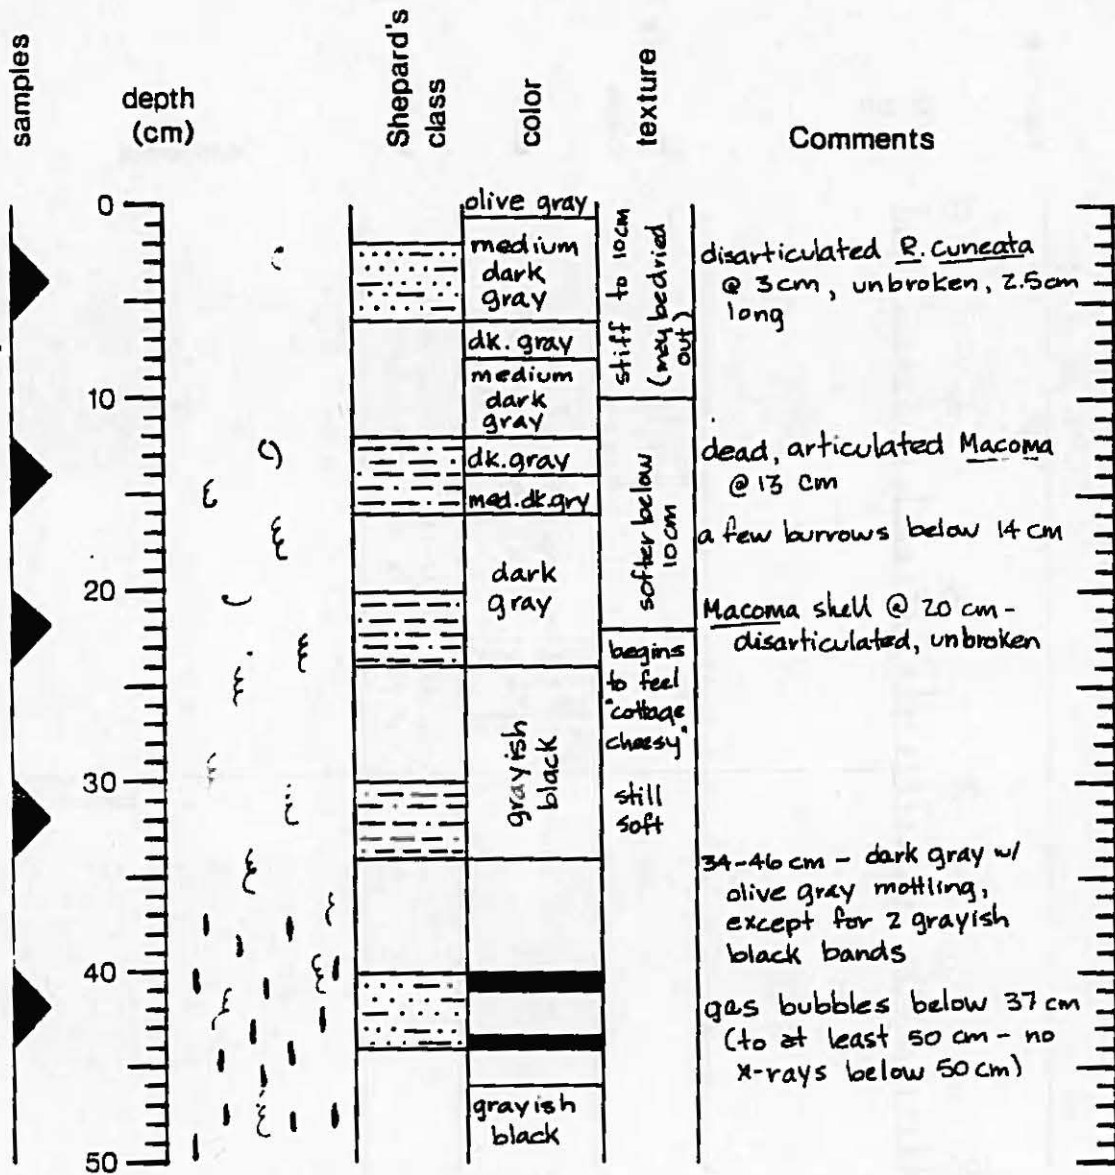 samples
depth
(cm)
Shepard's
class
color
texture
Comments
0
10
20
30
40
50
olive gray
medium
dark
gray
dk. gray
medium
dark
gray
dk. gray
med. dk. gry
dark
gray
grayish
black
grayish
black
stiff to 10cm
(may be dried
out)
softer below
10cm
begins
to feel
"cottage
cheesy"
still
soft
disarticulated R. cuneata
@ 3cm, unbroken, 2.5cm
long
dead, articulated Macoma
@ 13 cm
a few burrows below 14 cm
Macoma shell @ 20 cm -
disarticulated, unbroken
34-46 cm - dark gray w/
olive gray mottling,
except for 2 grayish
black bands
gas bubbles below 37 cm
(to at least 50 cm - no
x-rays below 50 cm)